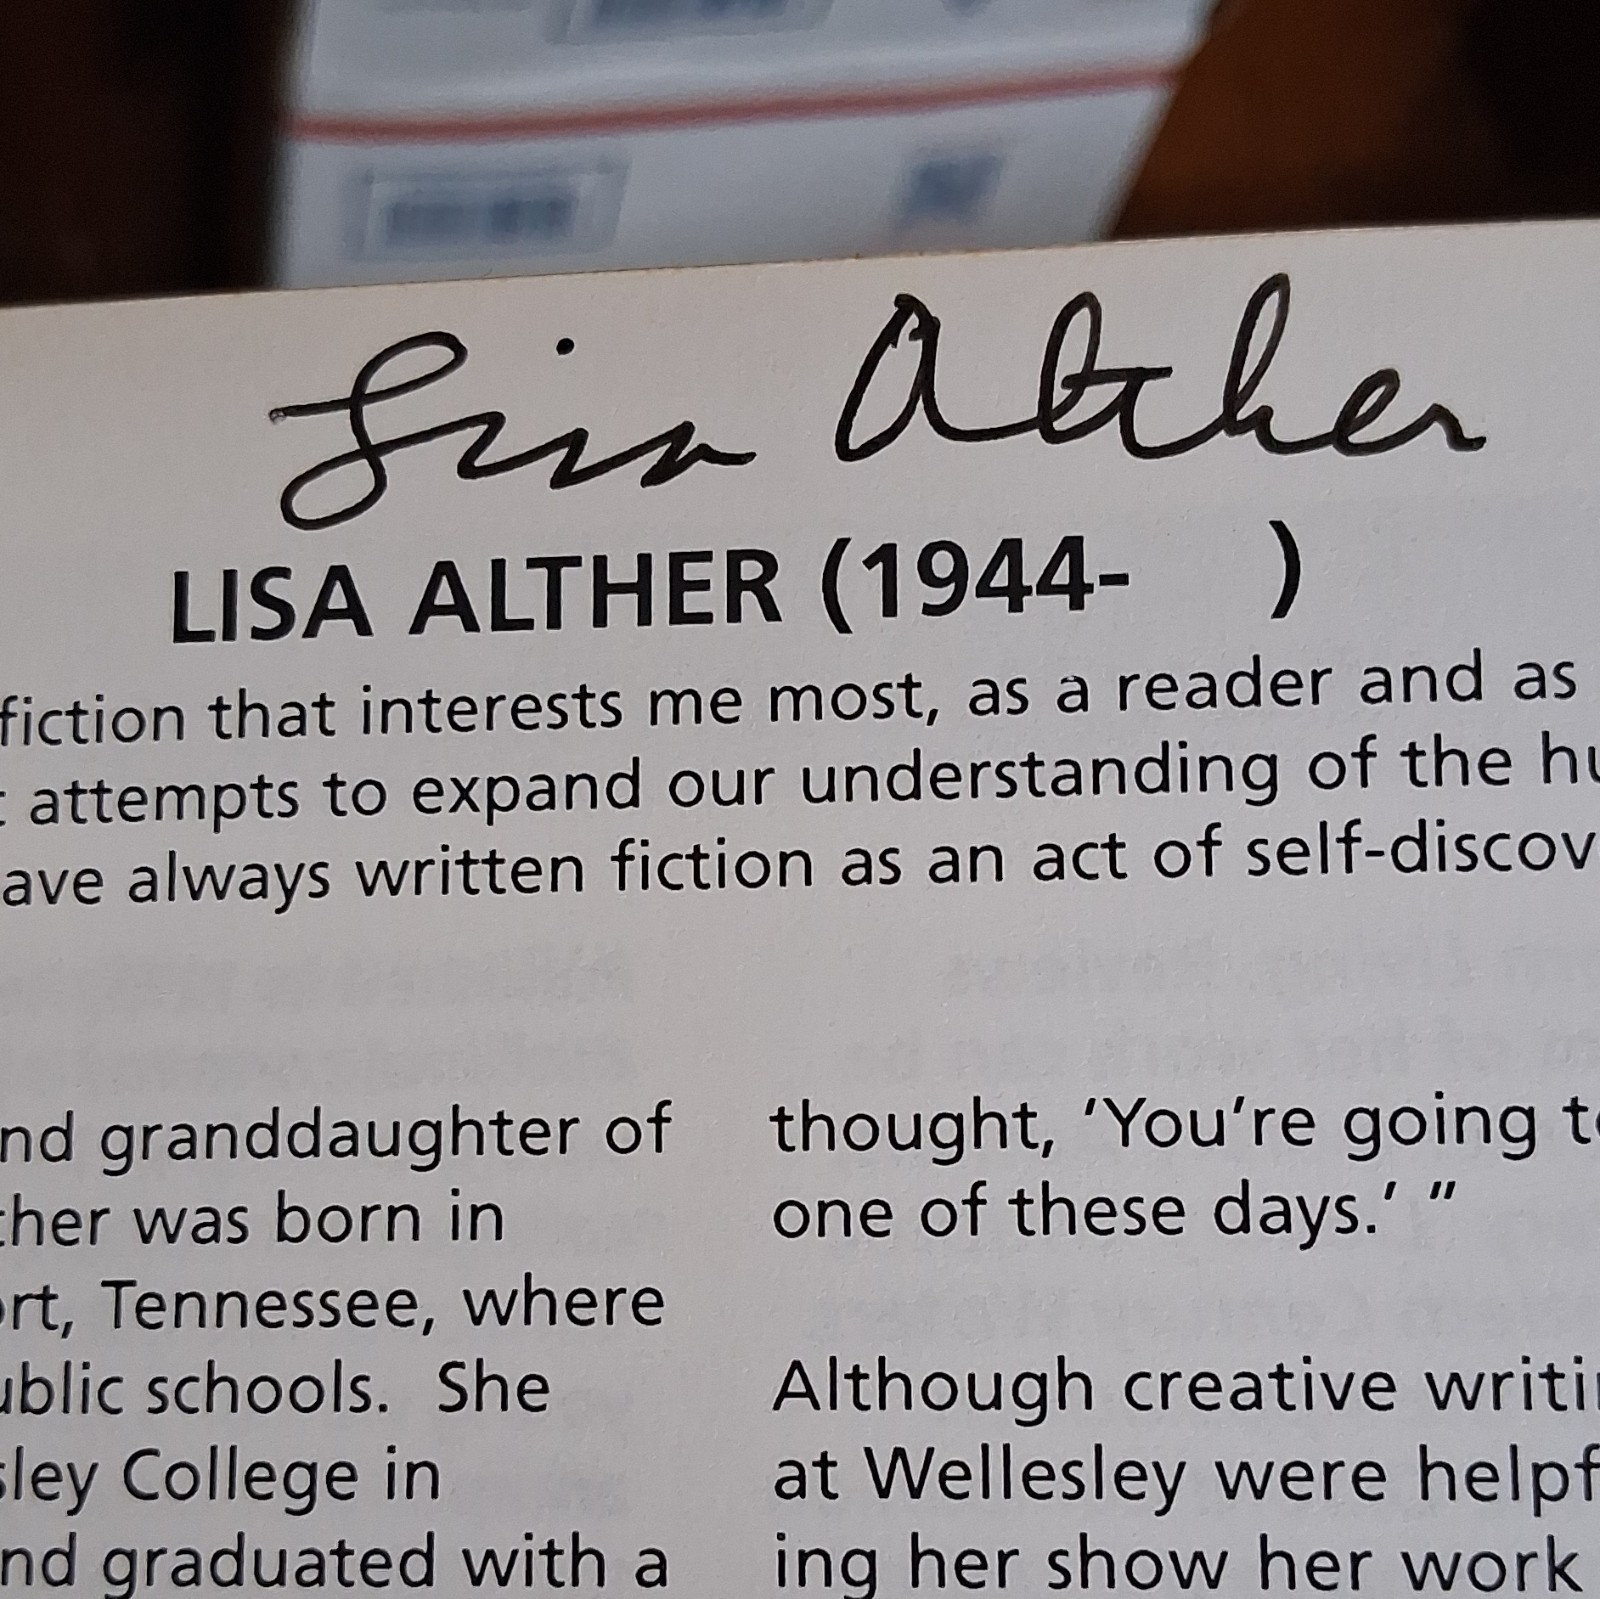 Lisa Alther
LISA ALTHER (1944- )
fiction that interests me most, as a reader and as
attempts to expand our understanding of the hu
ave always written fiction as an act of self-discov
nd granddaughter of
ther was born in
ort, Tennessee, where
ublic schools. She
sley College in
nd graduated with a
thought, 'You're going to
one of these days.' "
Although creative writin
at Wellesley were helpf
ing her show her work